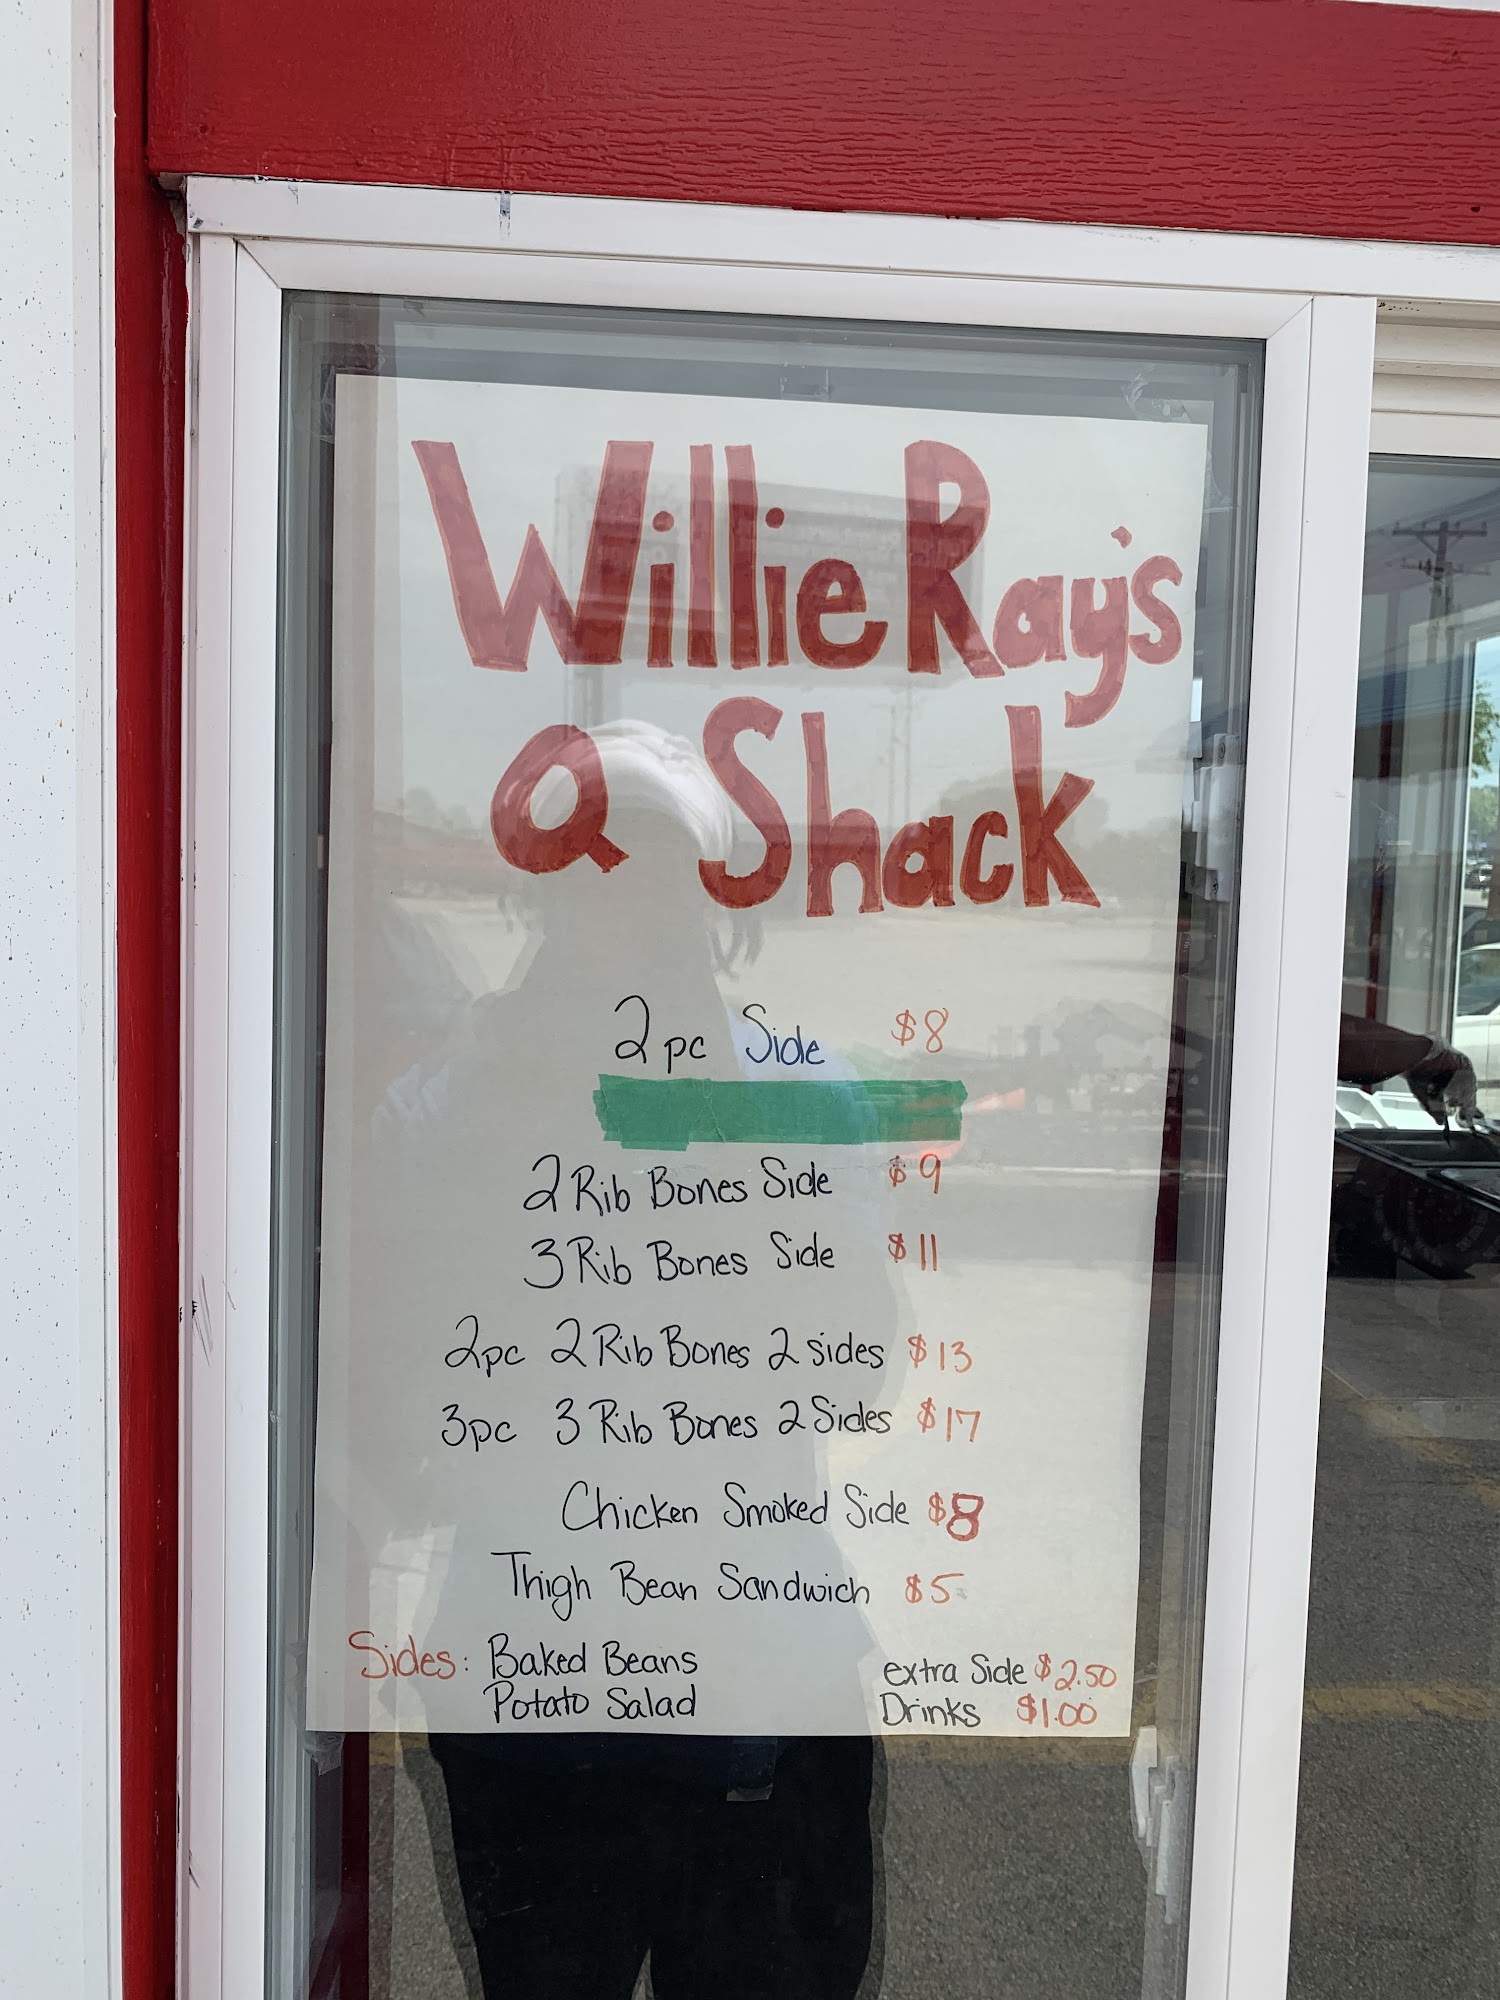 Willie Ray's
Q Shack
2pc Side $8
2 Rib Bones Side $9
3 Rib Bones Side $11
2pc 2 Rib Bones 2 sides $13
3pc 3 Rib Bones 2 Sides $17
Chicken Smoked Side $8
Thigh Bean Sandwich $5
Sides: Baked Beans
Potato Salad
extra Side $2.50
Drinks $1.00